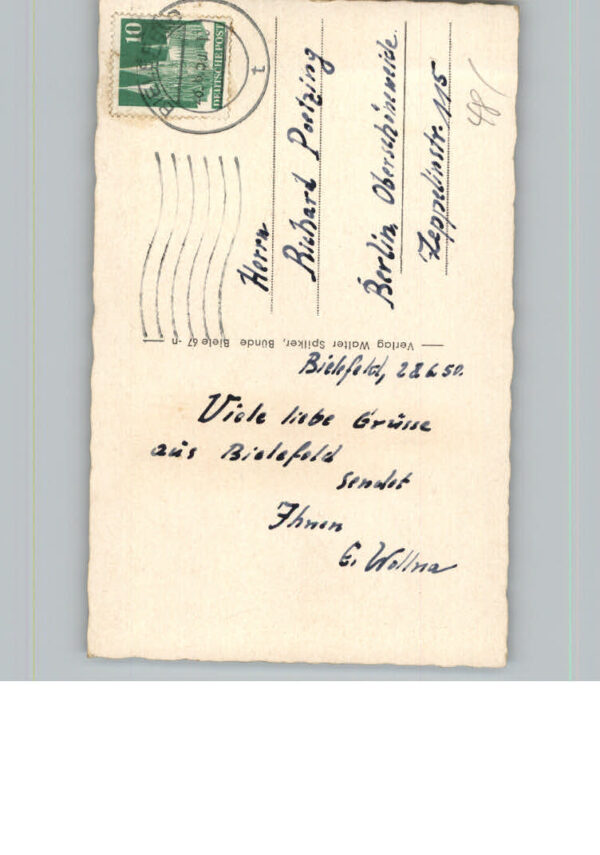 10
DEUTSCHE POST
Herrn
Richard Poetzing
Berlin Oberschöneweide.
Zeppelinstr. 115
48
Verlag Walter Spilker, Bünde Biele 67 -n
Bielefeld, 28.6.50.
Viele liebe Grüsse
aus Bielefeld
sendet
Ihnen
E. Wollna